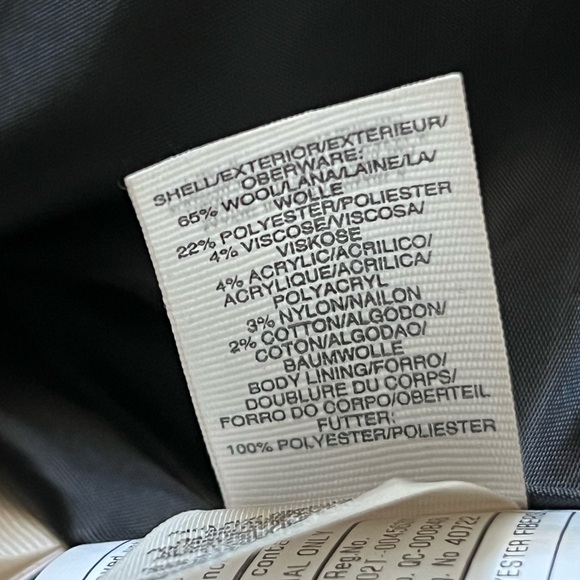 SHELL/EXTERIOR/EXTERIEUR/
OBERWARE:
65% WOOL/LANA/LAINE/LA/
WOLLE
22% POLYESTER/POLIESTER
4% VISCOSE/VISCOSA/
VISKOSE
4% ACRYLIC/ACRILICO/
ACRYLIQUE/ACRILICA/
POLYACRYL
3% NYLON/NAILON
2% COTTON/ALGODON/
COTON/ALGODAO/
BAUMWOLLE
BODY LINING/FORRO/
DOUBLURE DU CORPS/
FORRO DO CORPO/OBERTEIL
FUTTER:
100% POLYESTER/POLIESTER
AL ONLY
Reg.No.
No 40722